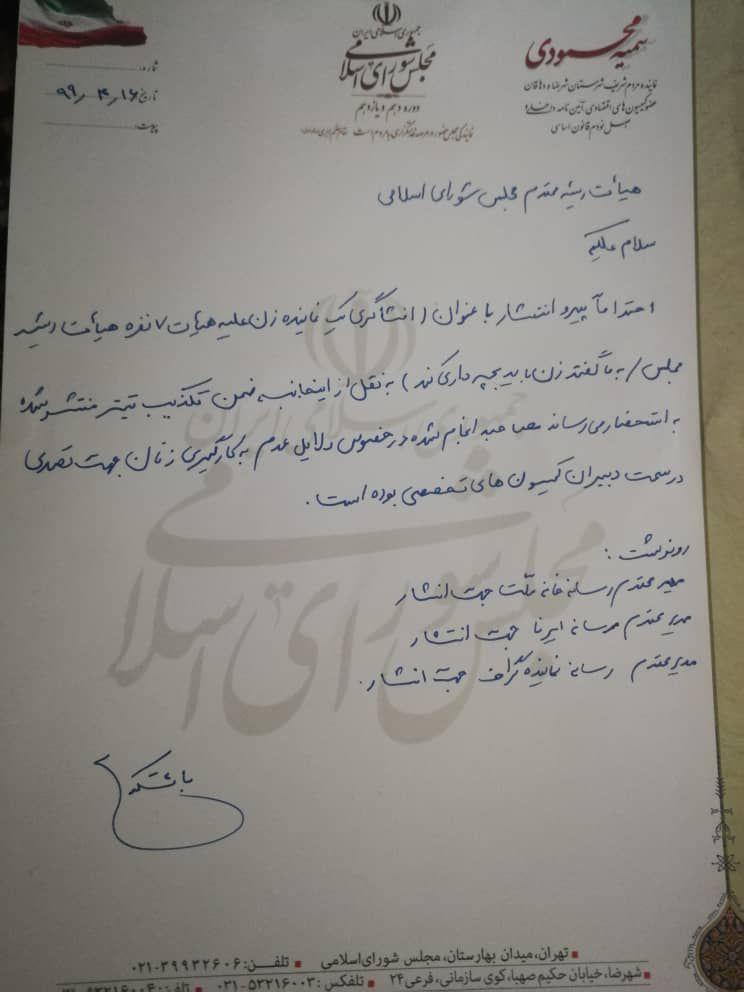 جمهوری اسلامی ایران
مجلس شورای اسلامی
دوره دهم و یازدهم
سمیه محمودی
نماینده مردم شریف شهرستان شهرضا و دهاقان
عضو کمیسیون های اقتصادی، آئین نامه داخلی و
اصل نودم قانون اساسی
شماره:
تاریخ: ۹۹٫۴٫۱۶
پیوست:
هیأت رئیسه محترم مجلس شورای اسلامی
سلام علیکم
احتراماً پیرو انتشار با عنوان (افشاگری یک نماینده زن علیه هیات ۷ نفره هیأت رئیسه
مجلس / به ما گفتند زن باید بچه داری کند) به نقل از اینجانب ضمن تکذیب تیتر منتشر شده
به استحضار می رساند مصاحبه انجام شده در خصوص دلایل عدم به کارگیری زنان جهت تصدی
در سمت دبیران کمیسیون های تخصصی بوده است.
رونوشت:
مدیر محترم رسانه خانه ملت جهت انتشار
مدیر محترم رسانه ایرنا جهت انتشار
مدیر محترم رسانه نماینده گراف جهت انتشار.
با تشکر
تهران، میدان بهارستان، مجلس شورای اسلامی ■ تلفن: ۰۲۱-۳۹۹۳۲۶۰۶
شهرضا، خیابان حکیم صهبا، کوی سازمانی، فرعی ۲۴ ■ تلفکس: ۰۲۱-۵۳۲۱۶۰۰۳ ■ تلفن: